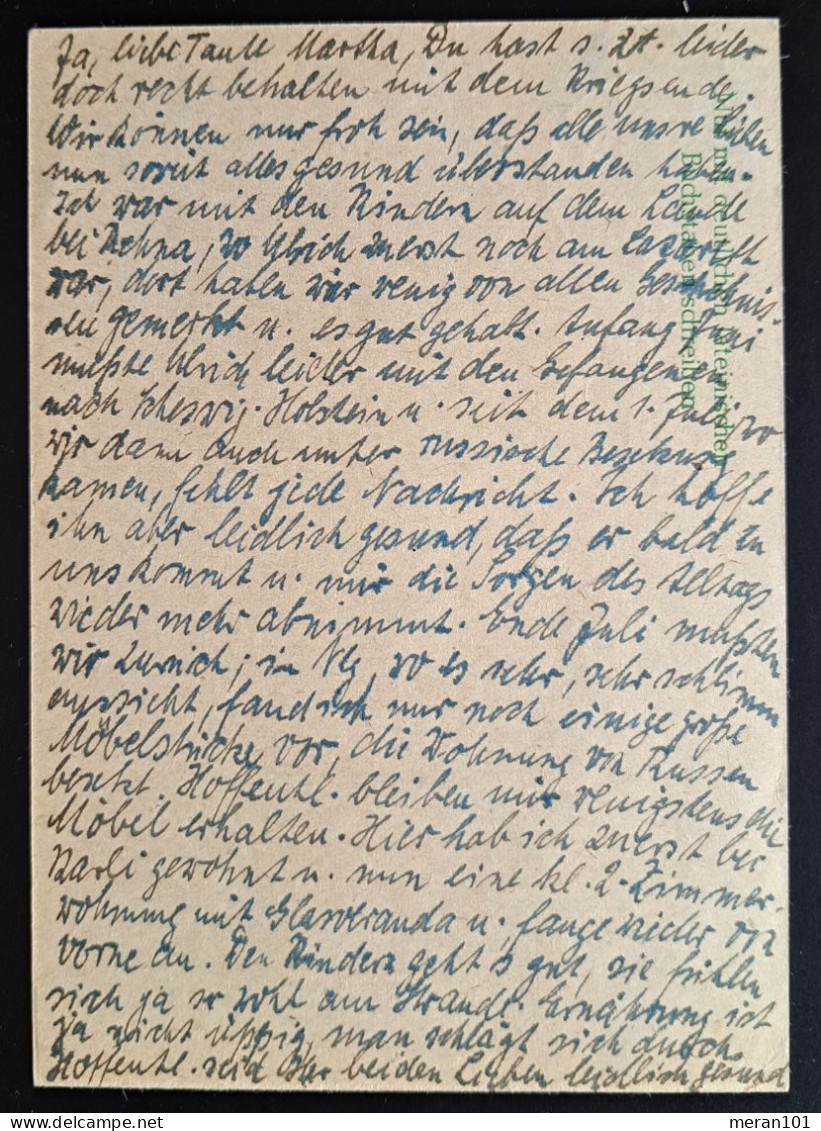 Ja, liebe Tante Martha, Du hast s. Zt. leider
doch recht behalten mit dem Kriegsende.
Wir können nur froh sein, daß alle unsre Lieben
nun soweit alles gesund überstanden haben.
Ich war mit den Kindern auf dem Lande
bei Rehna, wo Ulrich zuerst noch am Lazarett
war, dort haben wir wenig von allen Gescheh-
nissen gemerkt u. es gut gehabt. Anfang Juni
mußte Ulrich leider mit den Gefangenen
nach Schleswig-Holstein u. seit dem 1. Juli, wo
wir dann auch unter russische Besetzung
kamen, fehlt jede Nachricht. Ich hoffe
ihn aber leidlich gesund, daß er bald zu
uns kommt u. mir die Sorgen des Alltags
wieder mehr abnimmt. Ende Juli mußten
wir zurück; in Nbg, wo es sehr, sehr schlimm
aussieht, fand ich nur noch einige große
Möbelstücke vor, die Wohnung von Russen
besetzt. Hoffentl. bleiben mir wenigstens die
Möbel erhalten. Hier hab ich zuerst bei
Karli gewohnt u. nun eine kl. 2-Zimmer-
wohnung mit Glasveranda u. fange wieder von
vorne an. Den Kindern geht's gut, sie fühlen
sich ja so wohl am Strande. Ernährung ist
ja nicht üppig, man schlägt sich durch.
Hoffentl. seid Ihr beiden Lieben leidlich gesund
Bitte mit deutlichen lateinischen
Buchstaben schreiben!
meran101